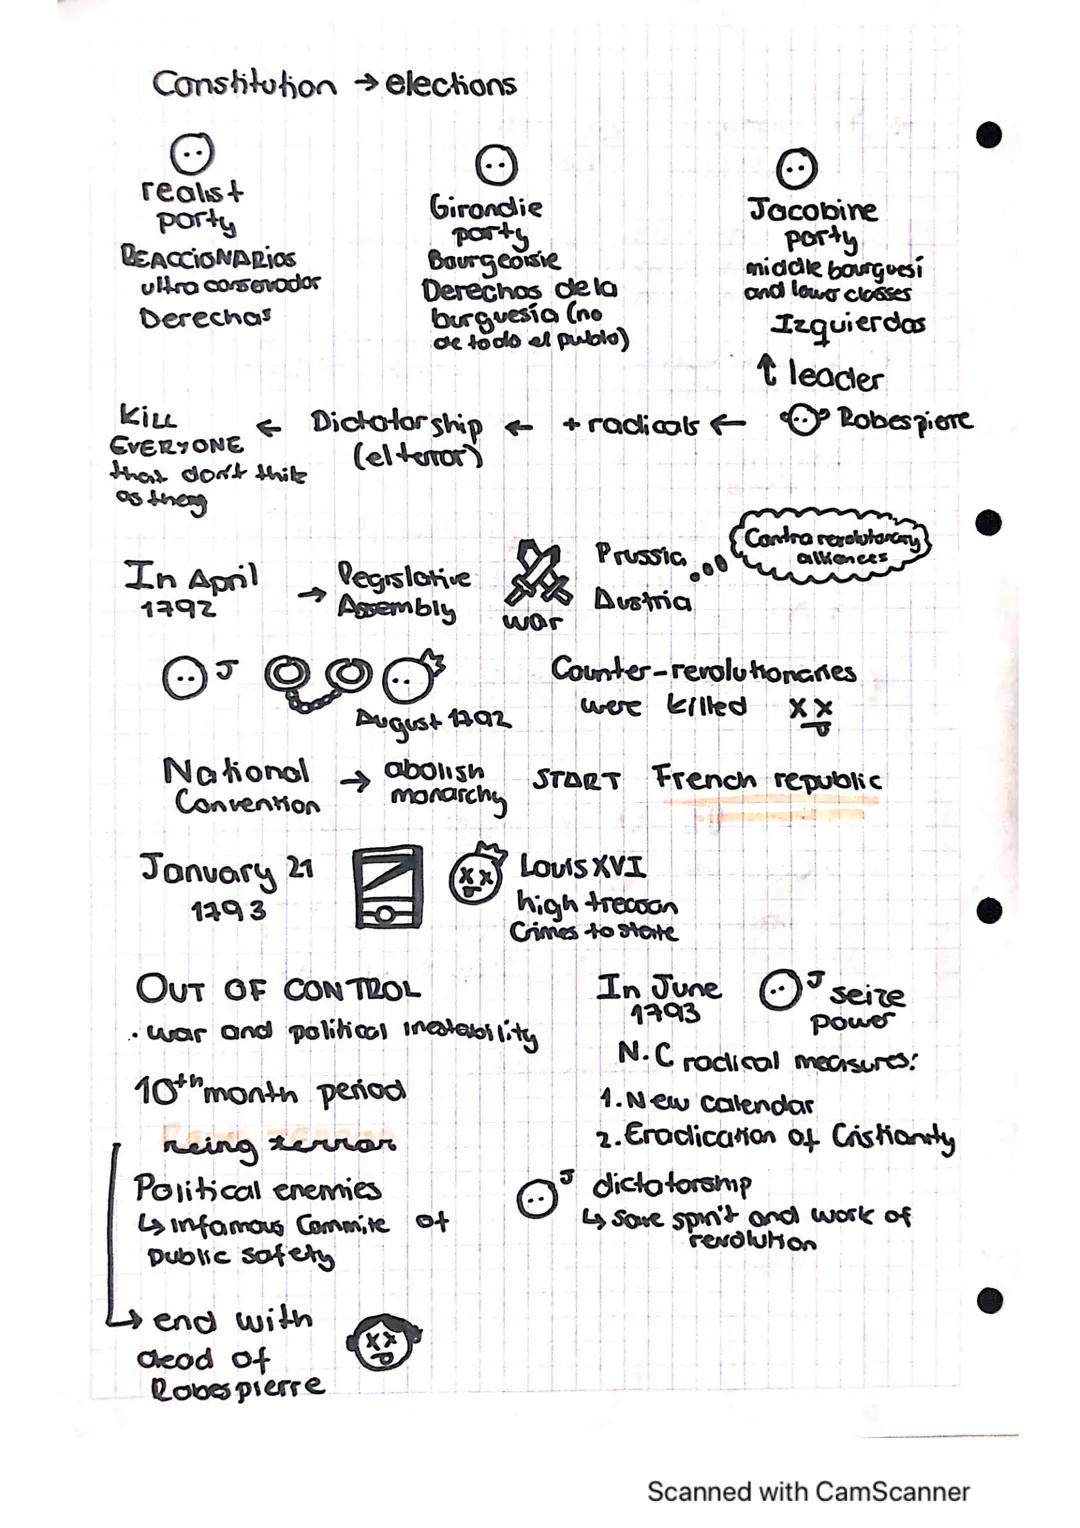 Constitution → elections
realist
party
REACCIONARIOS
ultra conservador
Derechas
Girondie
party
Bourgeoisie
Derechos de la
burguesía (no
de todo el pueblo)
Jacobine
party
middle bourguesi
and lower classes
Izquierdas
↑ leader
Robespierre
← + radicals
← Dictatorship
(el terror)
← Kill
EVERYONE
that don't thik
as they
In April
1792
→ Legislative
Assembly
war
Prussia
Austria
Contra revolutionary
alliences
J
August 1792
Counter-revolutionaries
were killed
National
Convention
→ abolish
monarchy
START French republic
January 21
1793
Louis XVI
high treason
Crimes to state
OUT OF CONTROL
· war and political inestability
10th month period
reing terror
Political enemies
↳ infamous Commite of
public safety
↳ end with
dead of
Robespierre
In June
1793
J seize
power
N.C radical measures:
1. New calendar
2. Eradication of Cristianity
J dictatorship
↳ save spirit and work of
revolution
Scanned with CamScanner